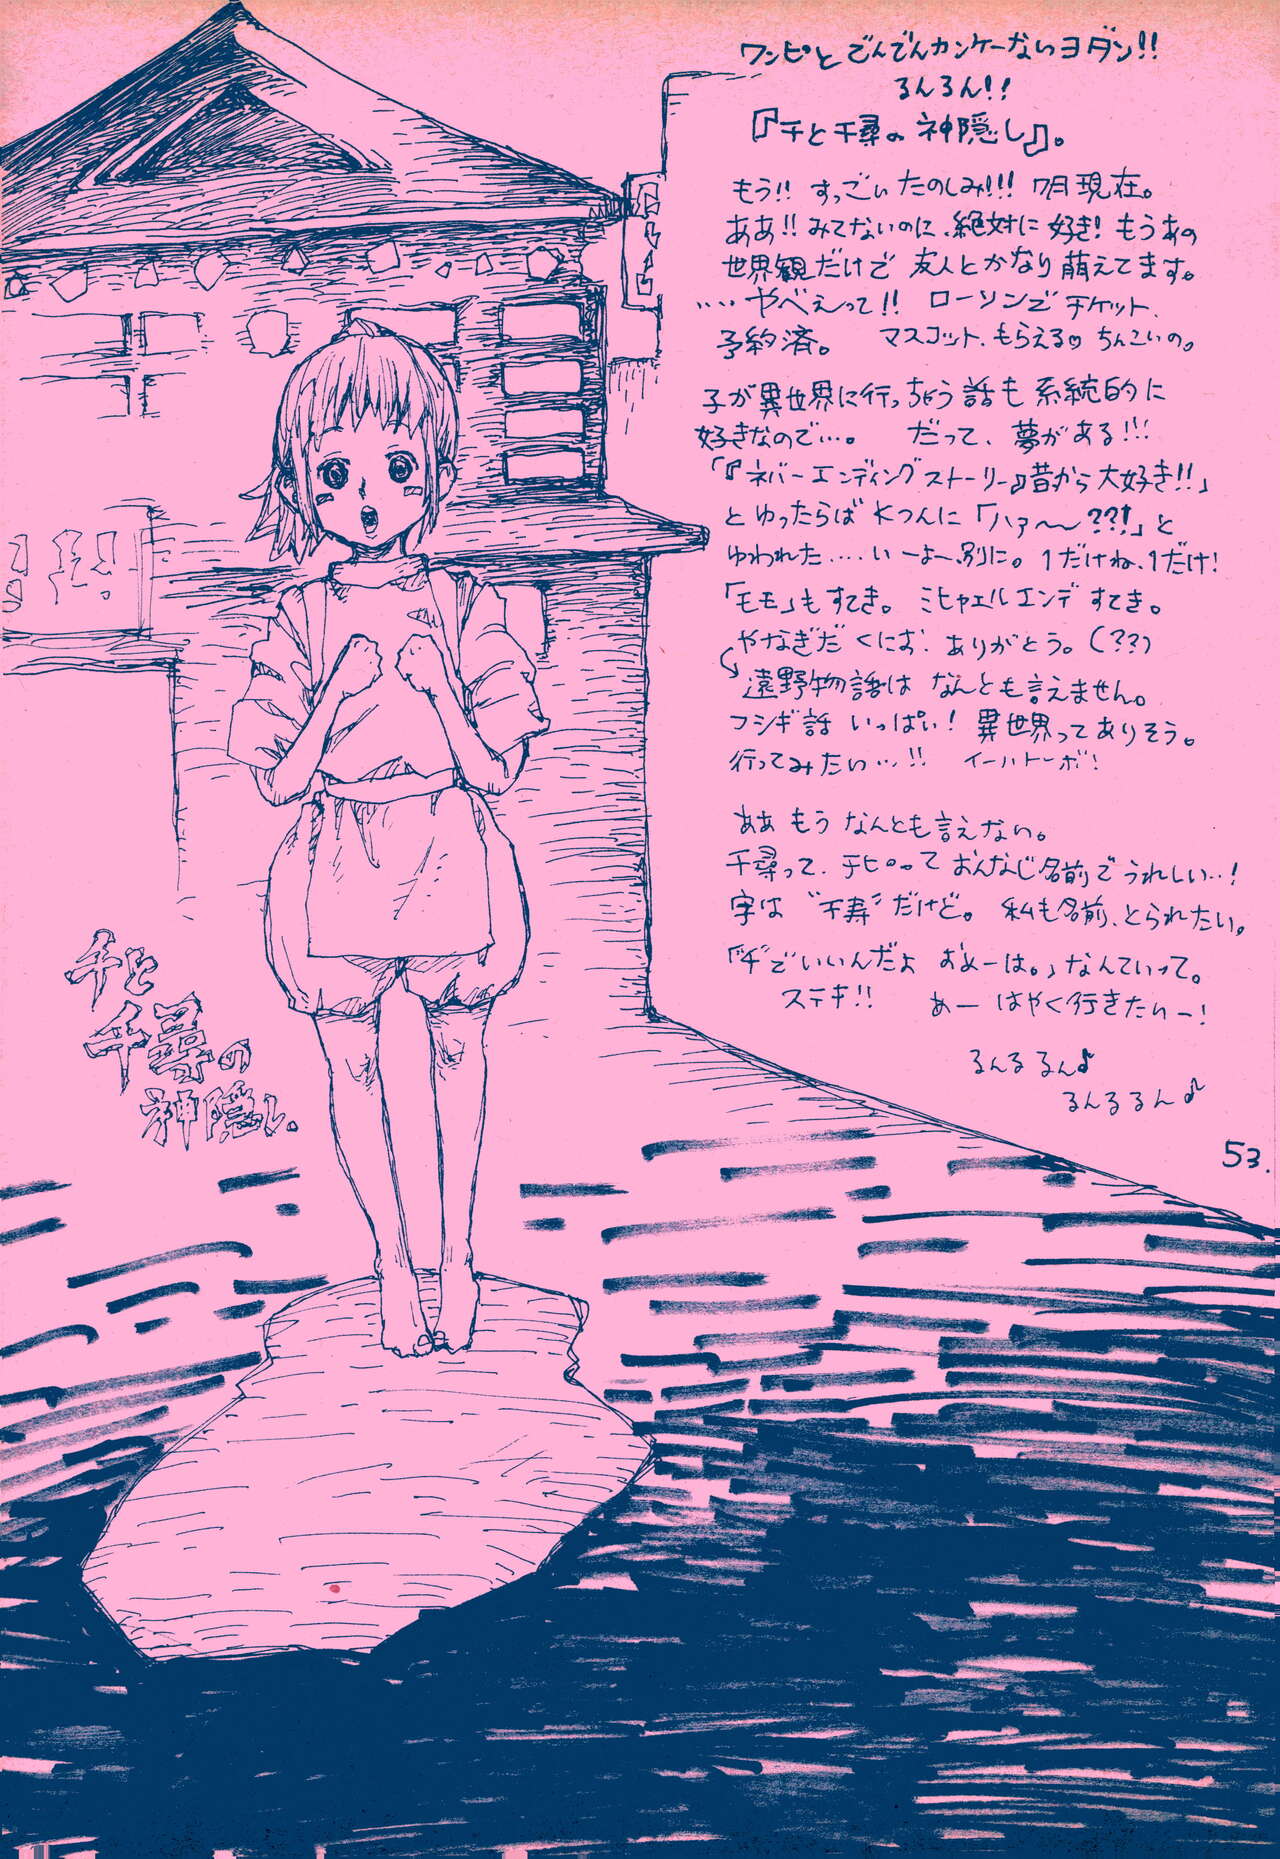 ワンピと でんでんカンケーないヨダン!!
るんるん!!
『千と千尋の神隠し』。
もう!! すっごいたのしみ!!! 7月現在。
ああ!! みてないのに、絶対に好き! もうあの
世界観だけで 友人とかなり萌えてます。
‥‥やべぇって!! ローソンでチケット、
予約済。 マスコット、もらえる♡ ちんこいの。
子が異世界に行っちゃう話も系統的に
好きなので…。 だって、夢がある!!!
「『ネバーエンディングストーリー』昔から大好き!!」
とゆったらば Kつんに「ハァ〜〜??!」と
ゆわれた‥‥いーよー、別に。1だけね、1だけ!
「モモ」もすてき。ミヒャエルエンデすてき。
やなぎだくにお、ありがとう。(??)
遠野物語はなんとも言えません。
フシギ話 いっぱい! 異世界ってありそう。
行ってみたい…!! イーハトーボ!
ああ もう なんとも言えない。
千尋って、チヒロって おんなじ名前でうれしい‥!
字は“千寿”だけど。 私も名前、とられたい。
「“チ”でいいんだよ おめーは。」なんていって。
ステキ!! あー はやく行きたいー!
るんるるん♪
るんるるん♪
53.
千と
千尋の
神隠し